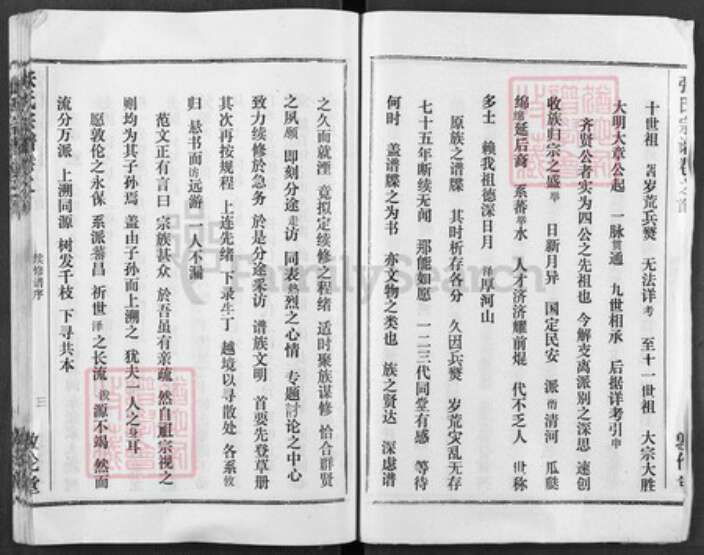 十世祖 因岁荒兵燹 无法详考 至十一世祖 大宗大胜
大明大章公起 一脉贯通 九世相承 后据详考引申
齐贤公者实为四公之先祖也 今解支离派别之深思 速创
收族归宗之盛举 日新月异 国定民安 派衍清河 瓜瓞
绵绵延后裔 系蕃举水 人才济济耀前焜 代不乏人 世称
多士 赖我祖德深日月 泽厚河山
原族之谱牒 其时析存各分 久因兵燹 岁荒灾乱无存
七十五年断续无闻 那能如愿 一二三代同堂有感 等待
何时 盖谱牒之为书 亦文物之类也 族之贤达 深虑谱
之久而就湮 竟拟定续修之程绪 适时聚族谋修 恰合群贤
之夙愿 即刻分途走访 同表热烈之心情 专题讨论之中心
致力续修於急务 於是分途采访 谱族文明 首要先登草册
其次再按规程 上连先绪 下录生丁 越境以寻散处 各系敦
归 悬书面访远游 一人不漏
范文正有言曰 宗族甚众 於吾虽有亲疏 然自祖宗视之
则均为其子孙焉 盖由子孙而上溯之 犹夫一人之身耳
愿敦伦之永保 系派蕃昌 祈世泽之长流 源不竭 然而
流分万派 上溯同源 树发千枝 下寻共本
续修谱序
三
FamilySearch